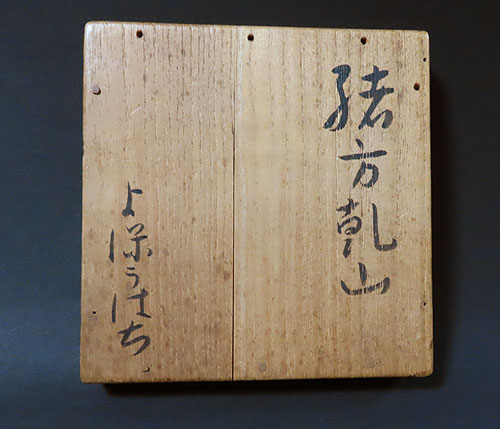 緒方乾山
よ保うはち